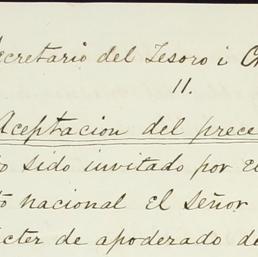 ecretario del Tesoro i C
11.
Aceptacion del prece
o sido invitado por e
o nacional el Señor
ácter de apoderado de